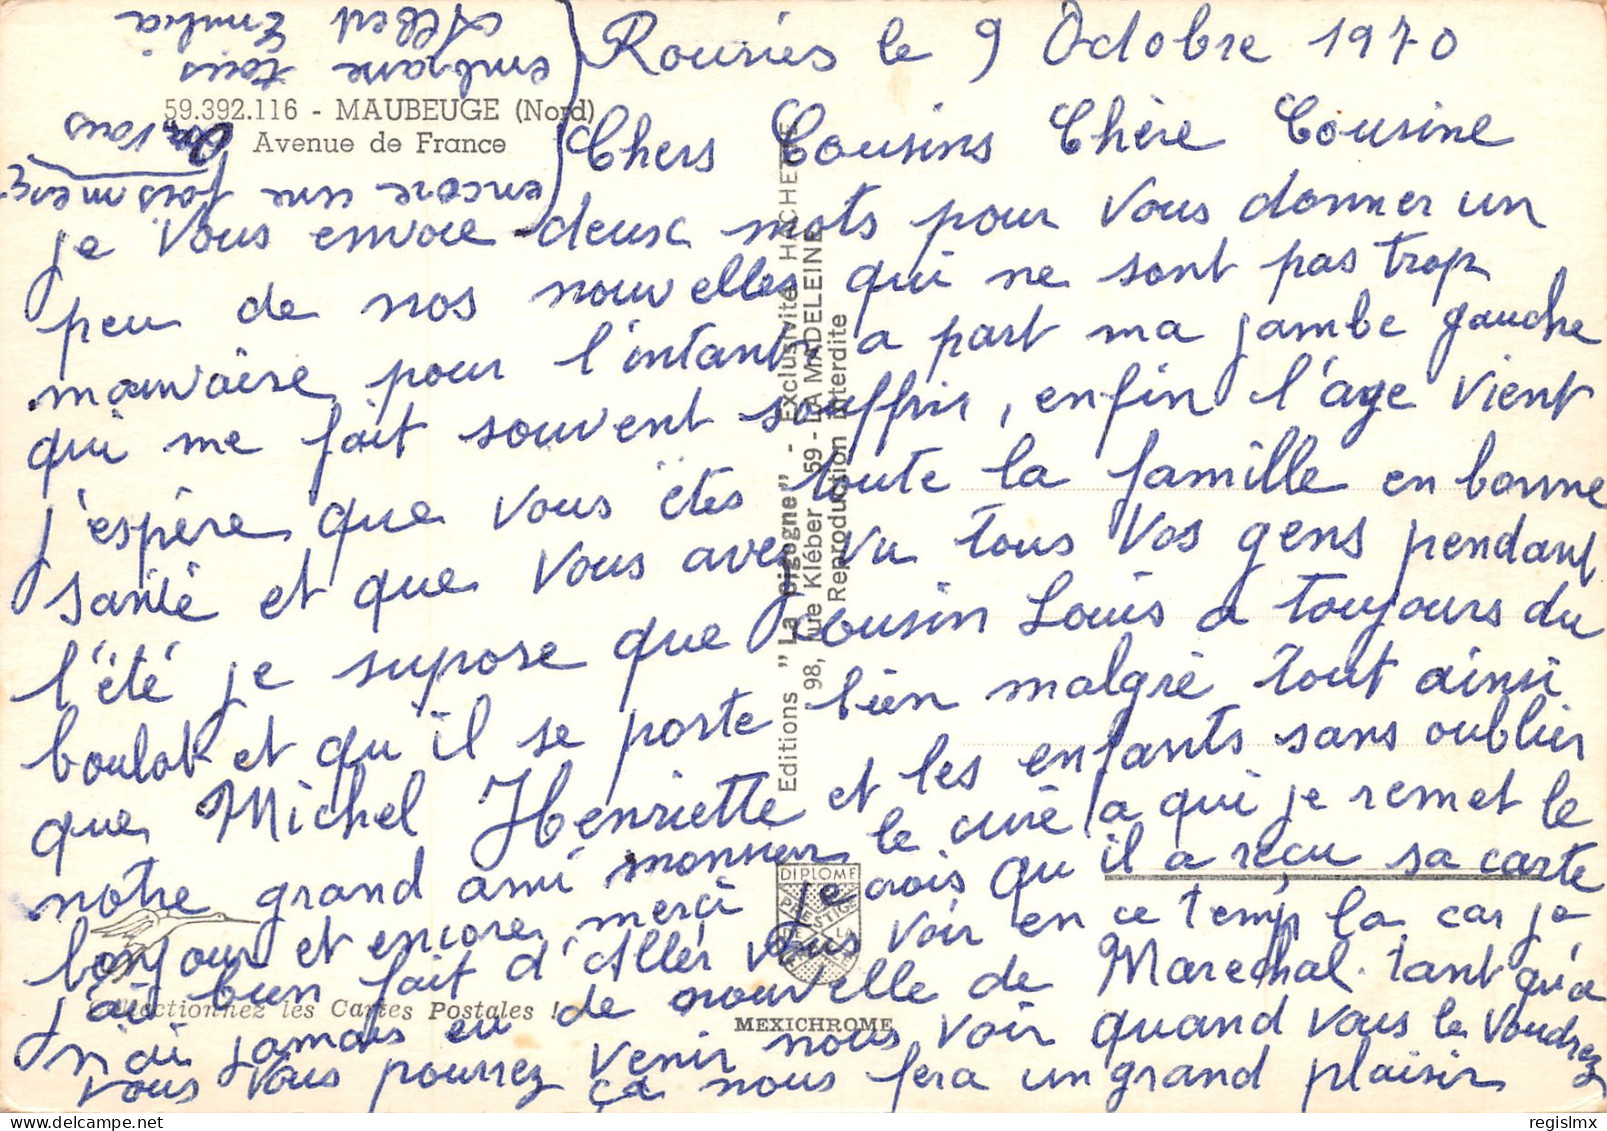 Rousies le 9 Octobre 1970
59.392.116 - MAUBEUGE (Nord)
Avenue de France
Chers Cousins Chère Cousine
je vous envoie deux mots pour vous donner un
peu de nos nouvelles qui ne sont pas trop
mauvaise pour l'intant, a part ma jambe gauche
qui me fait souvent souffrir, enfin l'age vient
j'espère que vous êtes toute la famille en bonne
santé et que vous avez vu tous vos gens pendant
l'été je supose que cousin Louis a toujours du
boulot et qu'il se porte bien malgré tout ainsi
que Michel Henriette et les enfants sans oublier
notre grand ami monsieur le curé a qui je remet le
bonjour et encore merçi je crois qu'il a reçu sa carte
j'ai bien fait d'aller vous voir en ce temp la car je
n'ai jamais eu de nouvelle de Marechal. tant qu'a
vous vous pourrez venir nous voir quand vous le voudrez
ça nous fera un grand plaisir
encore une fois merçi
on vous
embrasse tous
Albert
Emilia
Editions "La Cigogne" - Exclusivité HACHETTE
98, rue Kléber - 59 - LA MADELEINE
Reproduction interdite
DIPLOME
PRESTIGE
DE LA
FRANCE
Collectionnez les Cartes Postales !
MEXICHROME
© regislmx